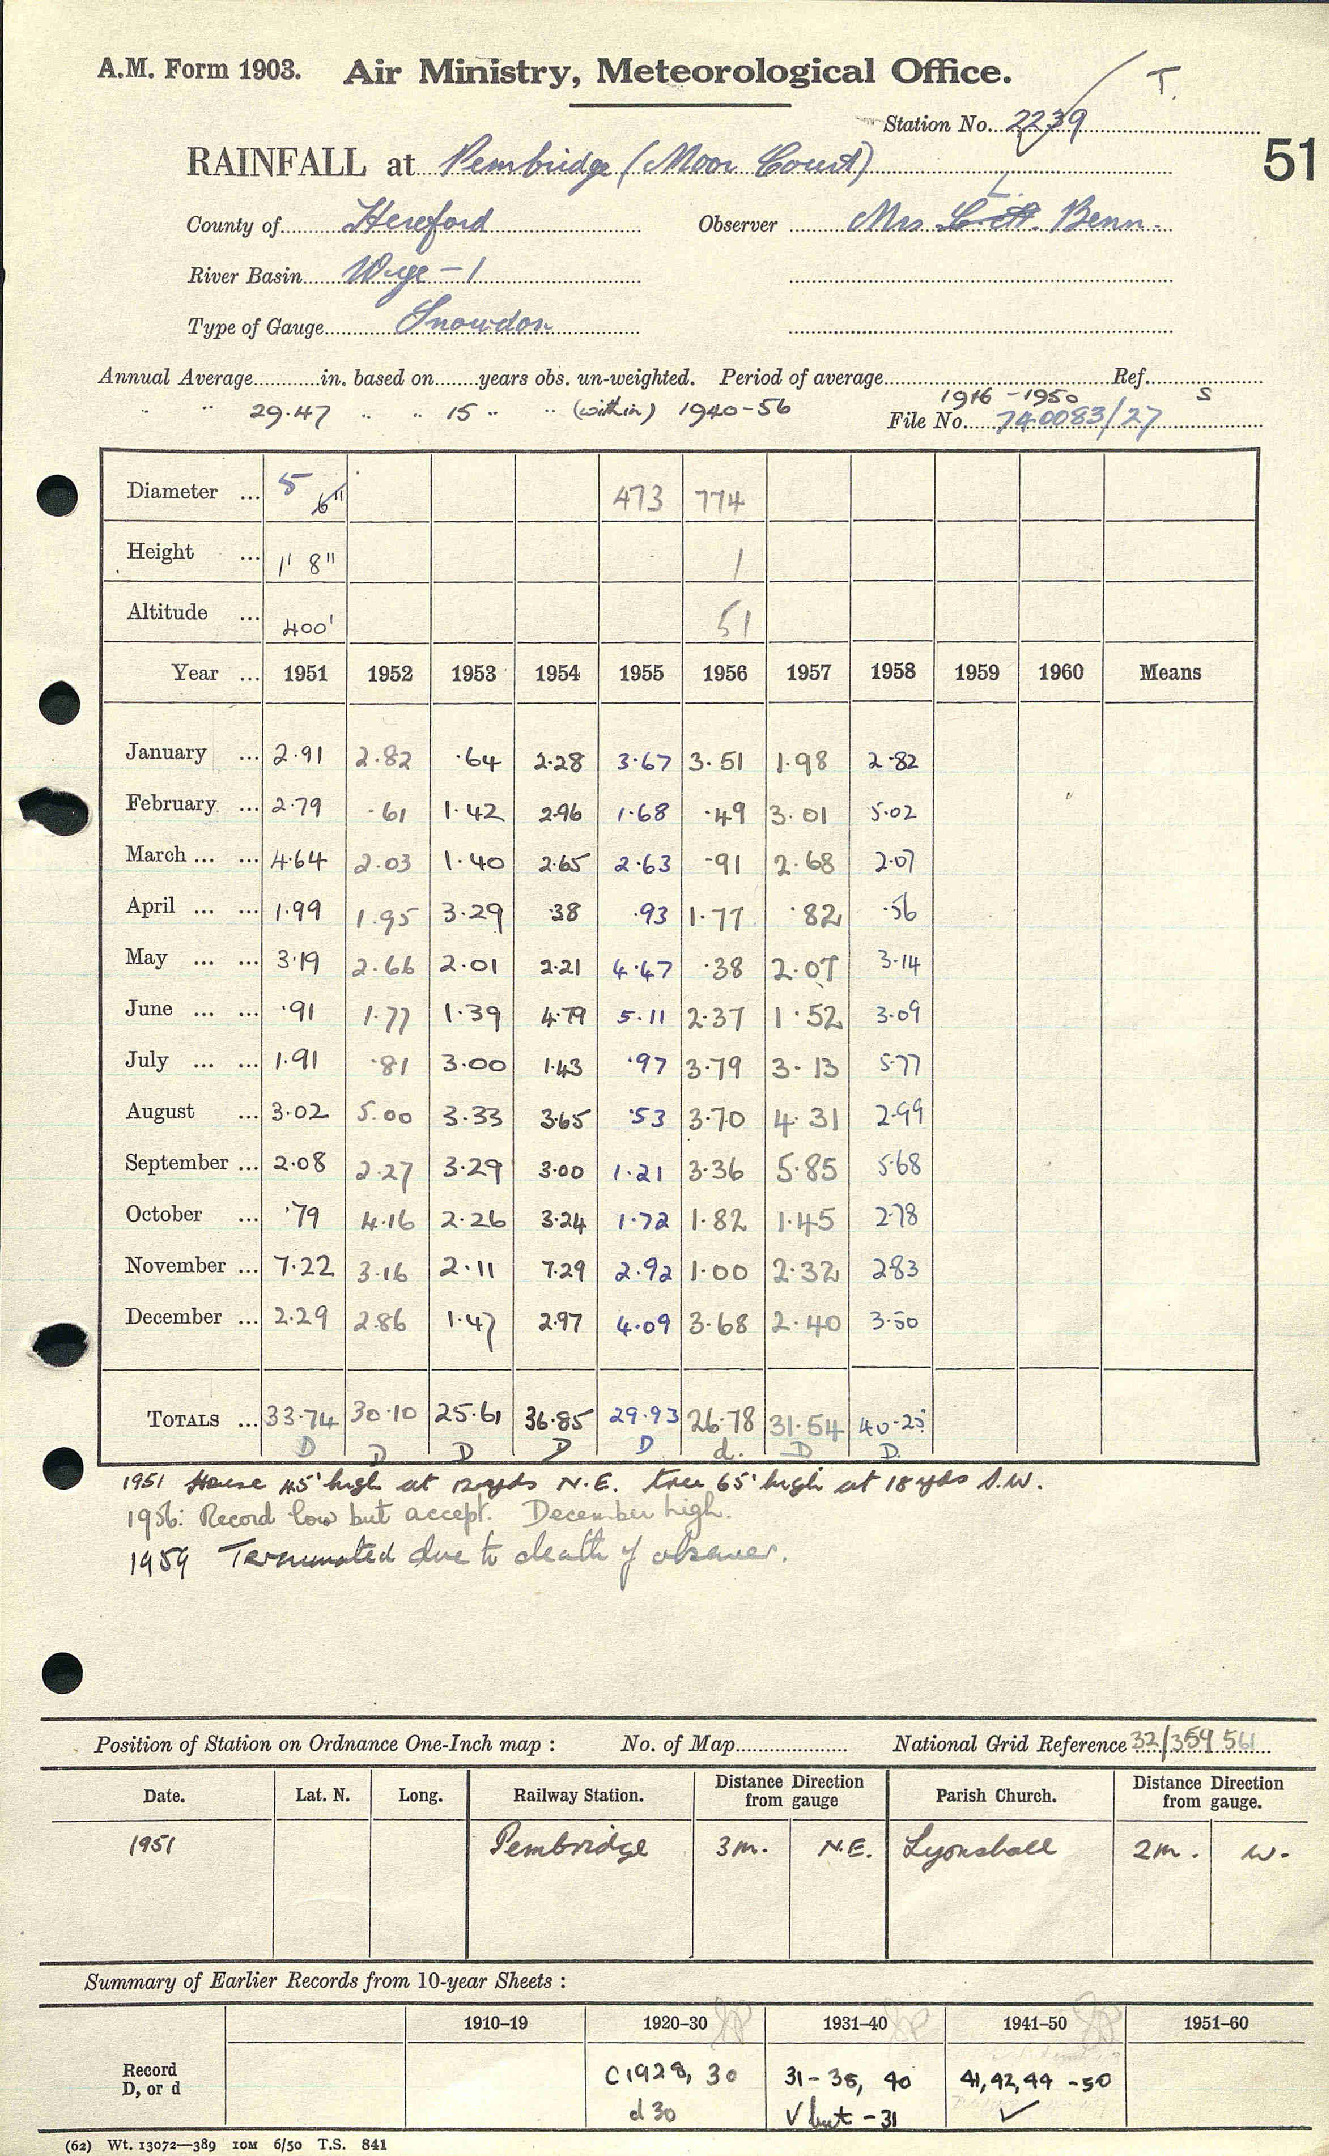 A.M. Form 1903. Air Ministry, Meteorological Office. T.
Station No. 2239
51
RAINFALL at Pembridge (Moor Court)
County of Hereford Observer Mrs L. Benn.
River Basin Wye - 1
Type of Gauge Snowdon
Annual Average in. based on years obs. un-weighted. Period of average 1916 - 1950 Ref. S
" " 29.47 " " 15 " " (within) 1940-56 File No. 740083/27
Diameter ... 5 6" 473 774
Height ... 1' 8" 1
Altitude ... 400' 51
Year ... 1951 1952 1953 1954 1955 1956 1957 1958 1959 1960 Means
January ... 2.91 2.82 .64 2.28 3.67 3.51 1.98 2.82
February ... 2.79 .61 1.42 2.96 1.68 .49 3.01 5.02
March ... ... 4.64 2.03 1.40 2.65 2.63 .91 2.68 2.07
April ... ... 1.99 1.95 3.29 .38 .93 1.77 .82 .56
May ... ... 3.19 2.66 2.01 2.21 4.47 .38 2.07 3.14
June ... ... .91 1.77 1.39 4.79 5.11 2.37 1.52 3.09
July ... ... 1.91 .81 3.00 1.43 .97 3.79 3.13 5.77
August ... 3.02 5.00 3.33 3.65 .53 3.70 4.31 2.99
September ... 2.08 2.27 3.29 3.00 1.21 3.36 5.85 5.68
October ... .79 4.16 2.26 3.24 1.72 1.82 1.45 2.78
November ... 7.22 3.16 2.11 7.29 2.92 1.00 2.32 2.83
December ... 2.29 2.86 1.47 2.97 4.09 3.68 2.40 3.50
TOTALS ... 33.74 30.10 25.61 36.85 29.93 26.78 31.54 40.25
D D D D D d. D D.
1951 House 45' high at 12 yds N.E. tree 65' high at 18 yds S.W.
1956: Record low but accept. December high.
1959 Terminated due to death of observer.
Position of Station on Ordnance One-Inch map : No. of Map National Grid Reference 32/359 561
Date. Lat. N. Long. Railway Station. Distance Direction from gauge Parish Church. Distance Direction from gauge.
1951 Pembridge 3m. N.E. Lyonshall 2m. W.
Summary of Earlier Records from 10-year Sheets :
1910-19 1920-30 1931-40 1941-50 1951-60
Record D, or d C1928, 30 31-38, 40 41, 42, 44 - 50
d 30 √ but - 31 ✓
(62) Wt. 13072—389 10M 6/50 T.S. 841